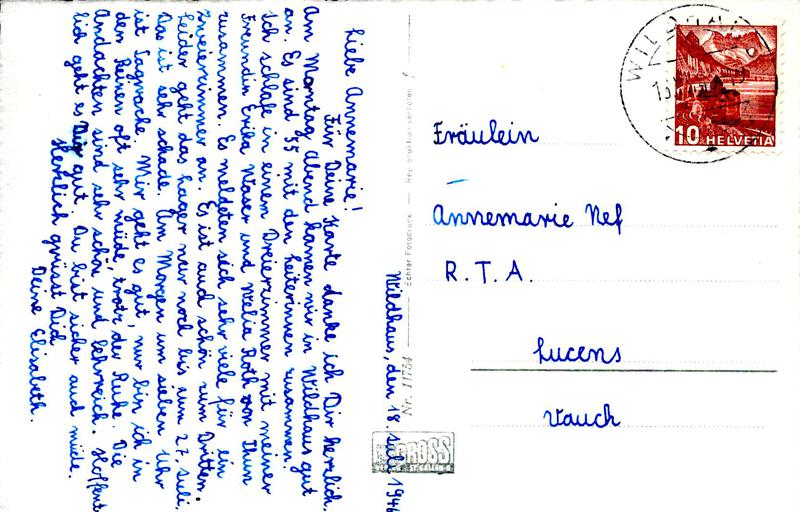 Wildhaus, den 18. Juli 1946
Liebe Annemarie!
Für Deine Karte danke ich Dir herzlich.
Am Montag Abend kamen wir in Wildhaus gut
an. Es sind 35 mit den Leiterinnen zusammen.
Ich schlafe in einem Dreierzimmer mit meiner
Freundin Erika Waser und Roth von Thun
zusammen. Es meldeten sich sehr viele für ein
Zweierzimmer an. Es ist auch schön zum Dritten.
Leider geht das Lager nur noch bis zum 27. Juli.
Das ist sehr schade. Am Morgen um sieben Uhr
ist Tagwache. Mir geht es gut, nur bin ich in
den Beinen oft sehr müde, trotz der Ruhe. Die
Andachten sind sehr schön und lehrreich. Hoffent-
lich geht es Dir gut. Du bist sicher auch müde.
Herzlich grüsst Dich
Deine Elisabeth.
Echter Fotodruck — Reproduktion verboten
Nr. 11784
GROSS
ST. GALLEN
WILDHAUS
10 HELVETIA
Fräulein
Annemarie Nef
R.T.A.
Lucens
Vauch